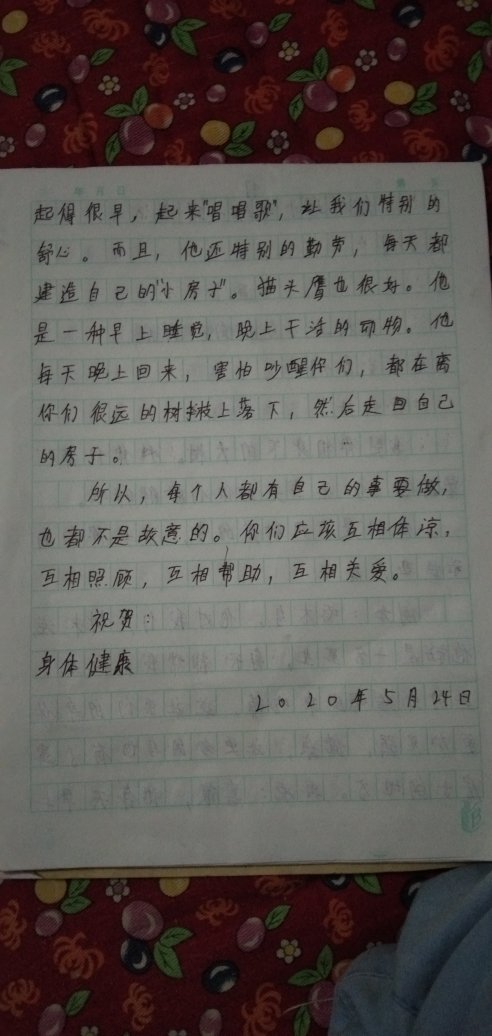 年 月 日
起得很早，起来"唱唱歌"，让我们特别的
舒心。而且，他还特别的勤劳，每天都
建造自己的"小房子"。猫头鹰也很好。他
是一种早上睡觉，晚上干活的动物。他
每天晚上回来，害怕吵醒你们，都在离
你们很远的树枝上落下，然后走回自己
的房子。
所以，每个人都有自己的事要做，
也都不是故意的。你们应该互相体凉，
互相照顾，互相帮助，互相关爱。
祝贺：
身体健康
2020年5月24日